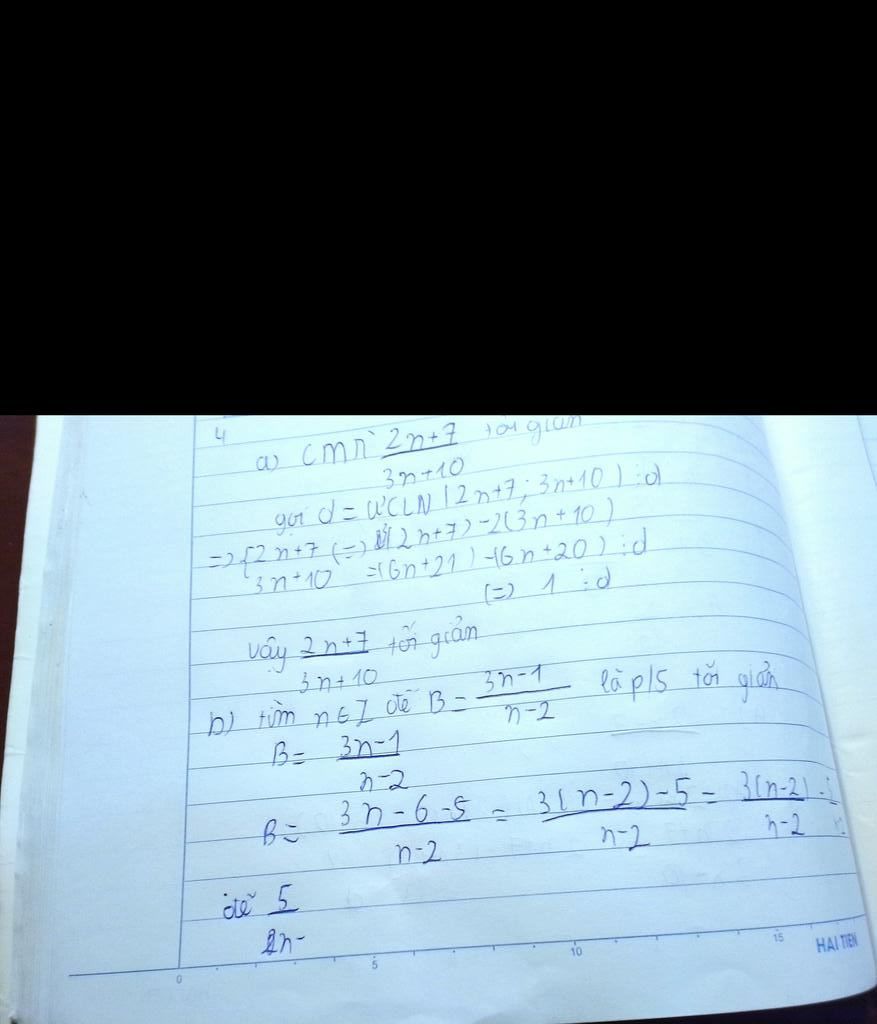 4
a) CMR 2n+7/3n+10 tối giản
gọi d = ƯCLN (2n+7; 3n+10) ⋮ d
=> {2n+7 (=) 3(2n+7) - 2(3n+10)
3n+10 =(6n+21) -(6n+20) ⋮ d
(=) 1 ⋮ d
vậy 2n+7/3n+10 tối giản
b) tìm n∈Z để B = 3n-1/n-2 là p/s tối giản
B = 3n-1/n-2
B = 3n-6-5/n-2 = 3(n-2)-5/n-2 = 3(n-2)/n-2 -
để 5/n-
0 5 10 15
HẢI TIẾN